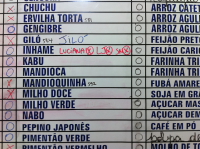 CHUCHU
ERVILHA TORTA
GENGIBRE
GILÓ JILÓ
INHAME LUCIANA
KABU
MANDIOCA
MANDIOQUINHA
MILHO DOCE
MILHO VERDE
NABO
PEPINO JAPONÊS
PIMENTÃO VERDE
PIMENTÃO VERMELHO
ARROZ CATE
ARROZ AGUL
ARROZ AGUL
FEIJÃO PRETO
FEIJÃO CARIO
FARINHA TRI
FARINHA TRI
FUBÁ AMARE
SOJA EM GRÃ
AÇUCAR MAS
AÇUCAR DEM
CAFÉ EM PÓ